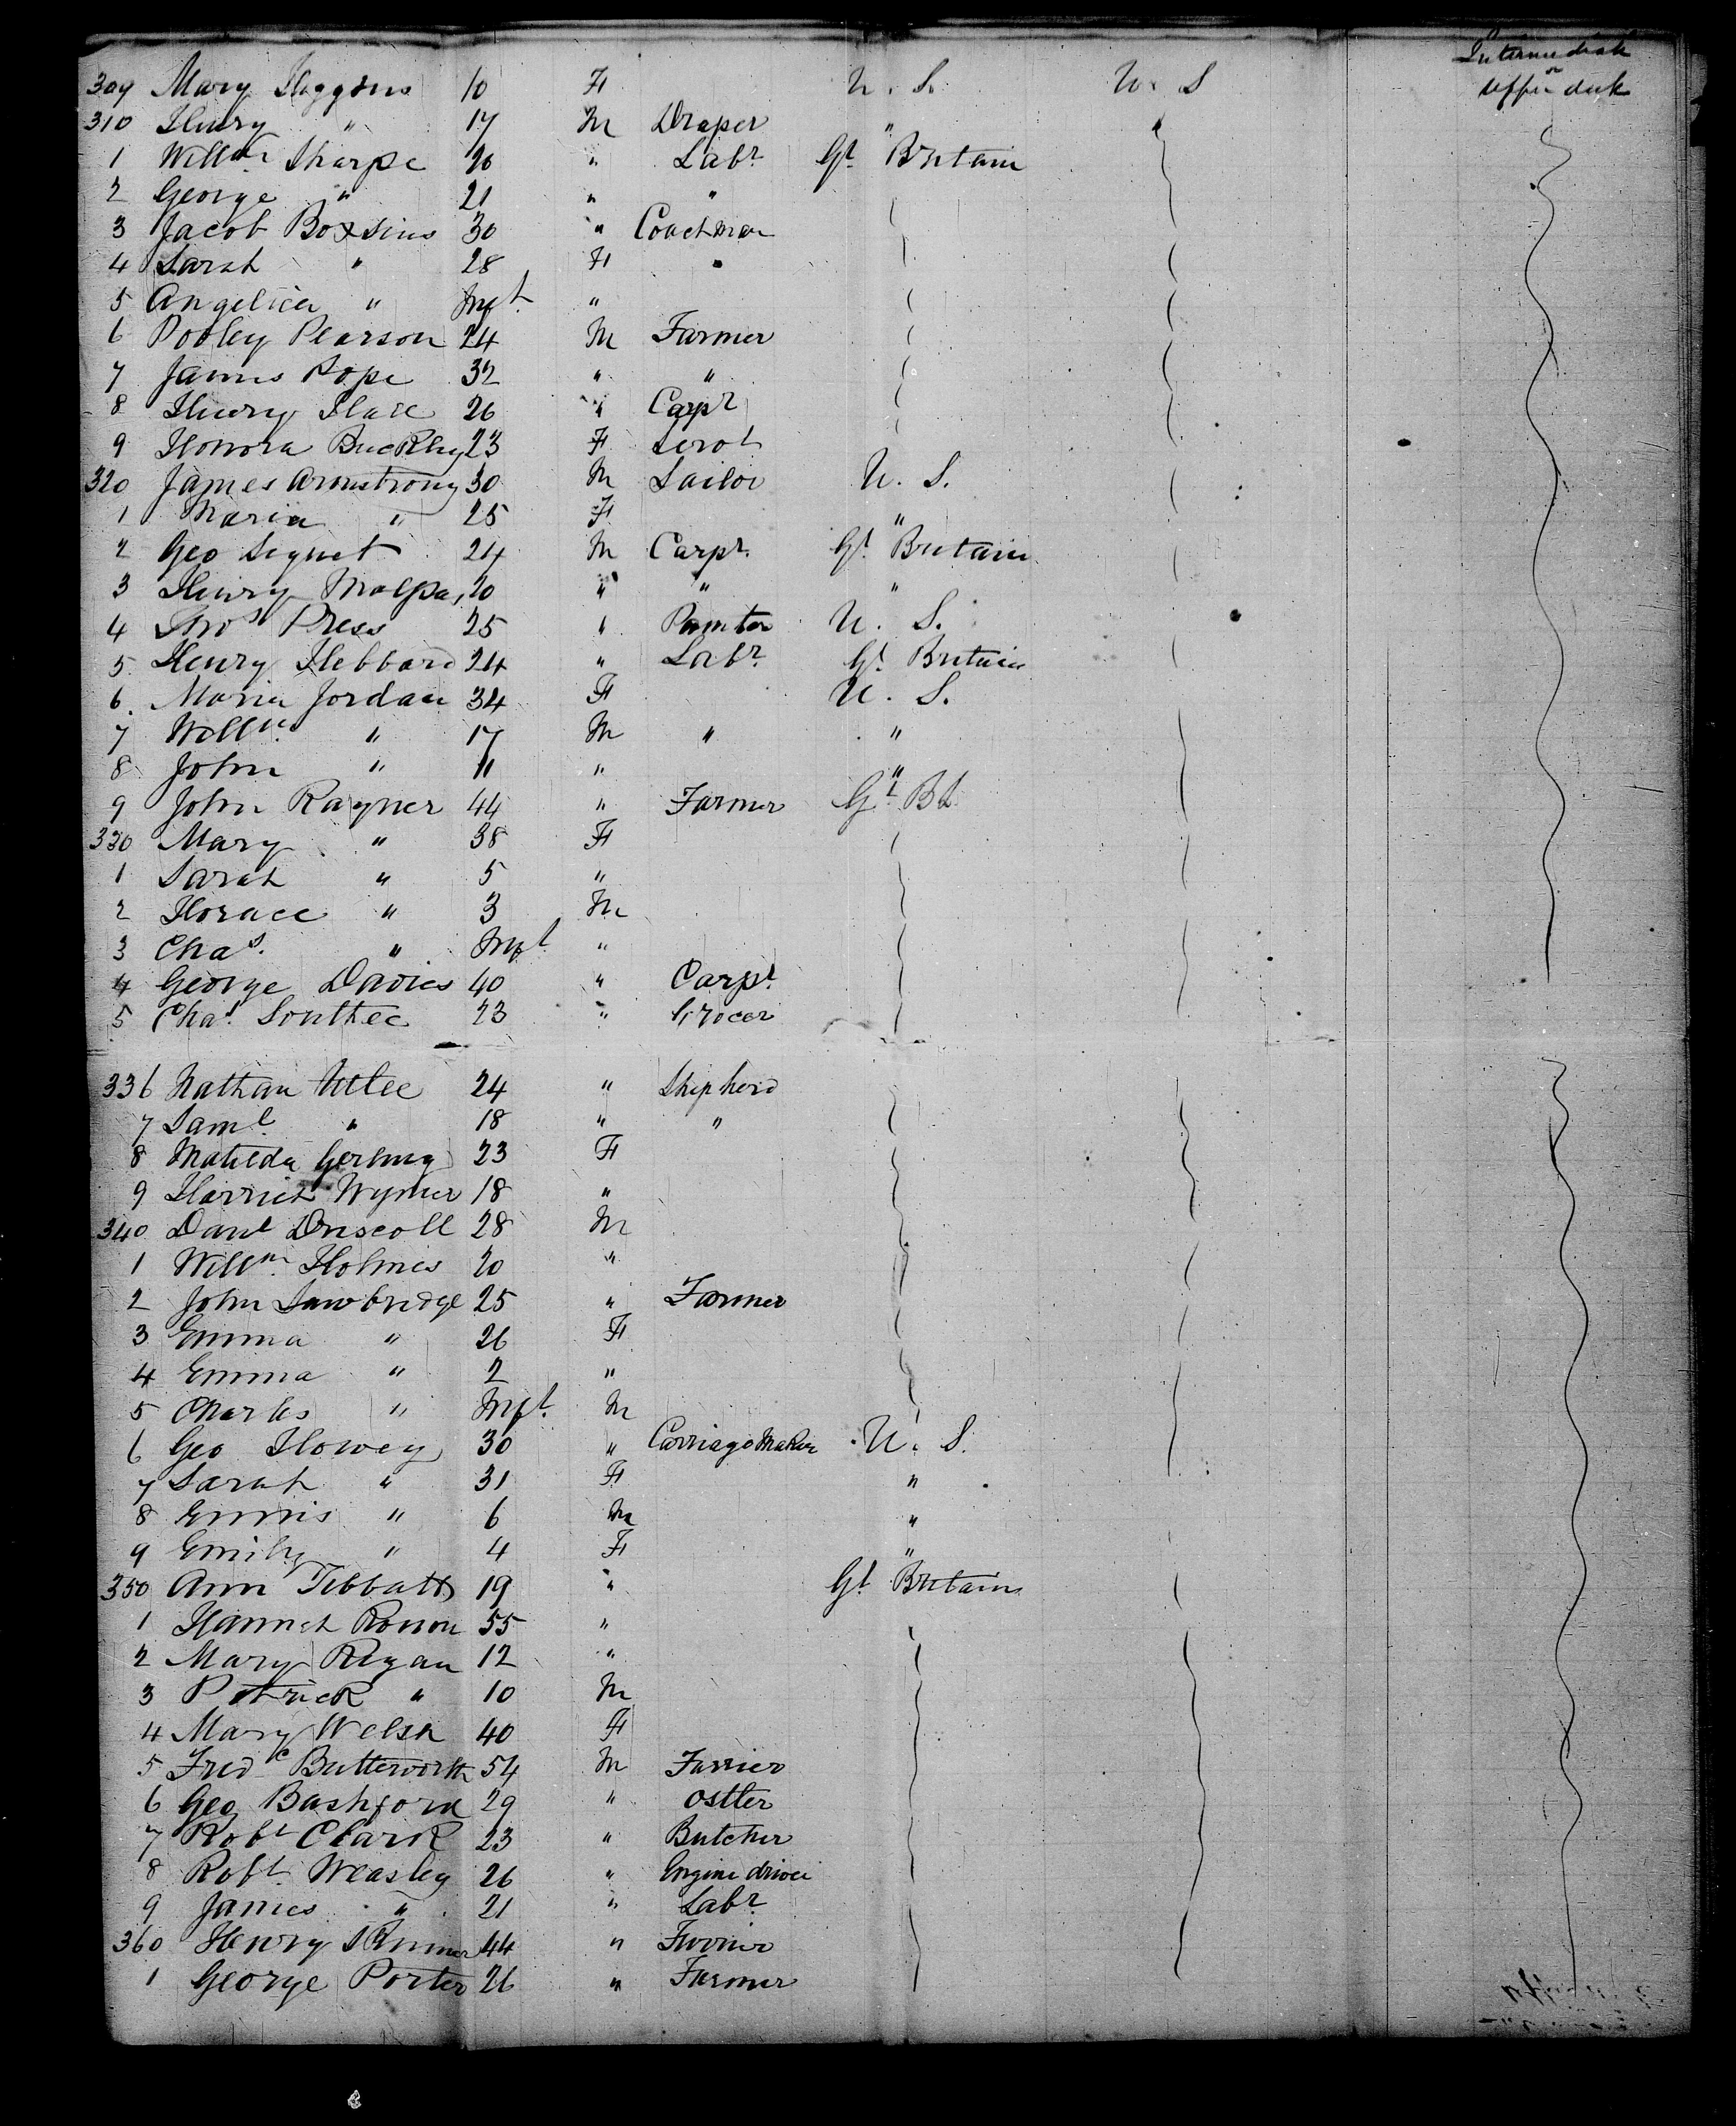 Intermediate
or
upper deck
309 Mary Higgins 10 F U. S. U. S
310 Henry " 17 M Draper "
1 Willm Sharpe 26 " Labr Gt Britain
2 George " 21 " "
3 Jacob Boxsius 30 " Coachman
4 Sarah " 28 F "
5 Angelica " Inft "
6 Pooley Pearson 24 M Farmer
7 James Pope 32 " "
8 Henry 26 " Carpr
9 Honora Buckley 23 F Servt
320 James Armstrong 30 M Sailor U. S.
1 Maria " 25 F "
2 Geo Signet 24 M Carpr Gt Britain
3 Henry Malpas 20 " " "
4 Thos Press 25 " Painter U. S.
5 Henry Hebbard 24 " Labr Gt Britain
6. Maria Jordan 34 F U. S.
7 Willm " 17 M " "
8 John " 11 " "
9 John Rayner 44 " Farmer Gt Bt
330 Mary " 38 F
1 Sarah " 5 "
2 Horace " 3 M
3 Chas. " Inft "
4 George Davies 40 " Carpr
5 Chas. Southee 23 " Grocer
336 Nathan 24 " Shepherd
7 Saml " 18 " "
8 Matilda 23 F
9 Harriet Wymer 18 "
340 Danl Driscoll 28 M
1 Willm Holmes 20 "
2 John Sawbridge 25 " Farmer
3 Emma " 26 F
4 Emma " 2 "
5 Charles " Inft. M
6 Geo Howey 30 " Carriage Maker U. S.
7 Sarah " 31 F "
8 Ennis " 6 M "
9 Emily " 4 F "
350 Ann Tibbatts 19 " Gt Britain
1 Hannah 55 "
2 Mary Regan 12 "
3 Patrick " 10 M
4 Mary Welsh 40 F
5 Fredc Butterworth 54 M Farrier
6 Geo Bashford 29 " Ostler
7 Robt Clark 23 " Butcher
8 Robt. Weasley 26 " Engine driver
9 James " 21 " Labr
360 Henry Skinner 44 "
1 George Porter 26 " Farmer